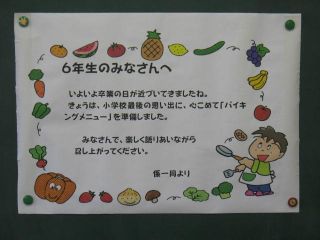 ６年生のみなさんへ
いよいよ卒業の日が近づいてきましたね。
きょうは、小学校最後の思い出に、心こめて「バイキ
ングメニュー」を準備しました。
みなさんで、楽しく語りあいながら
召し上がってください。
係一同より